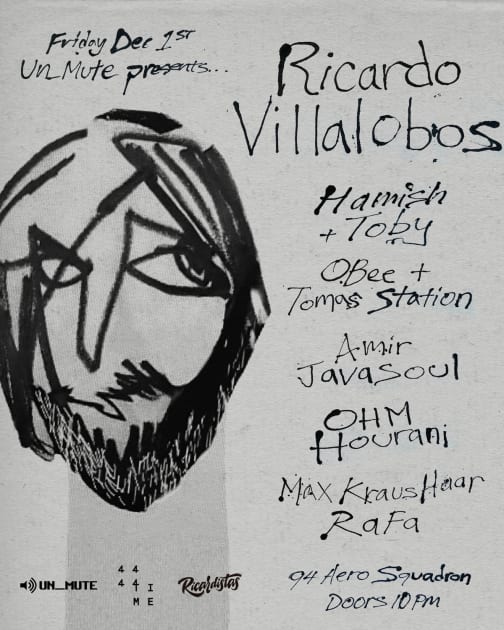 Friday Dec 1st
Un_Mute presents...
Ricardo
Villalobos
Hamish
+ Toby
OBee +
Tomas Station
Amir
JavaSoul
OHM
Hourani
Max KrausHaar
RaFa
94 Aero Squadron
Doors 10pm
UN_MUTE
4 4
4 4 I
M E
Ricardistas